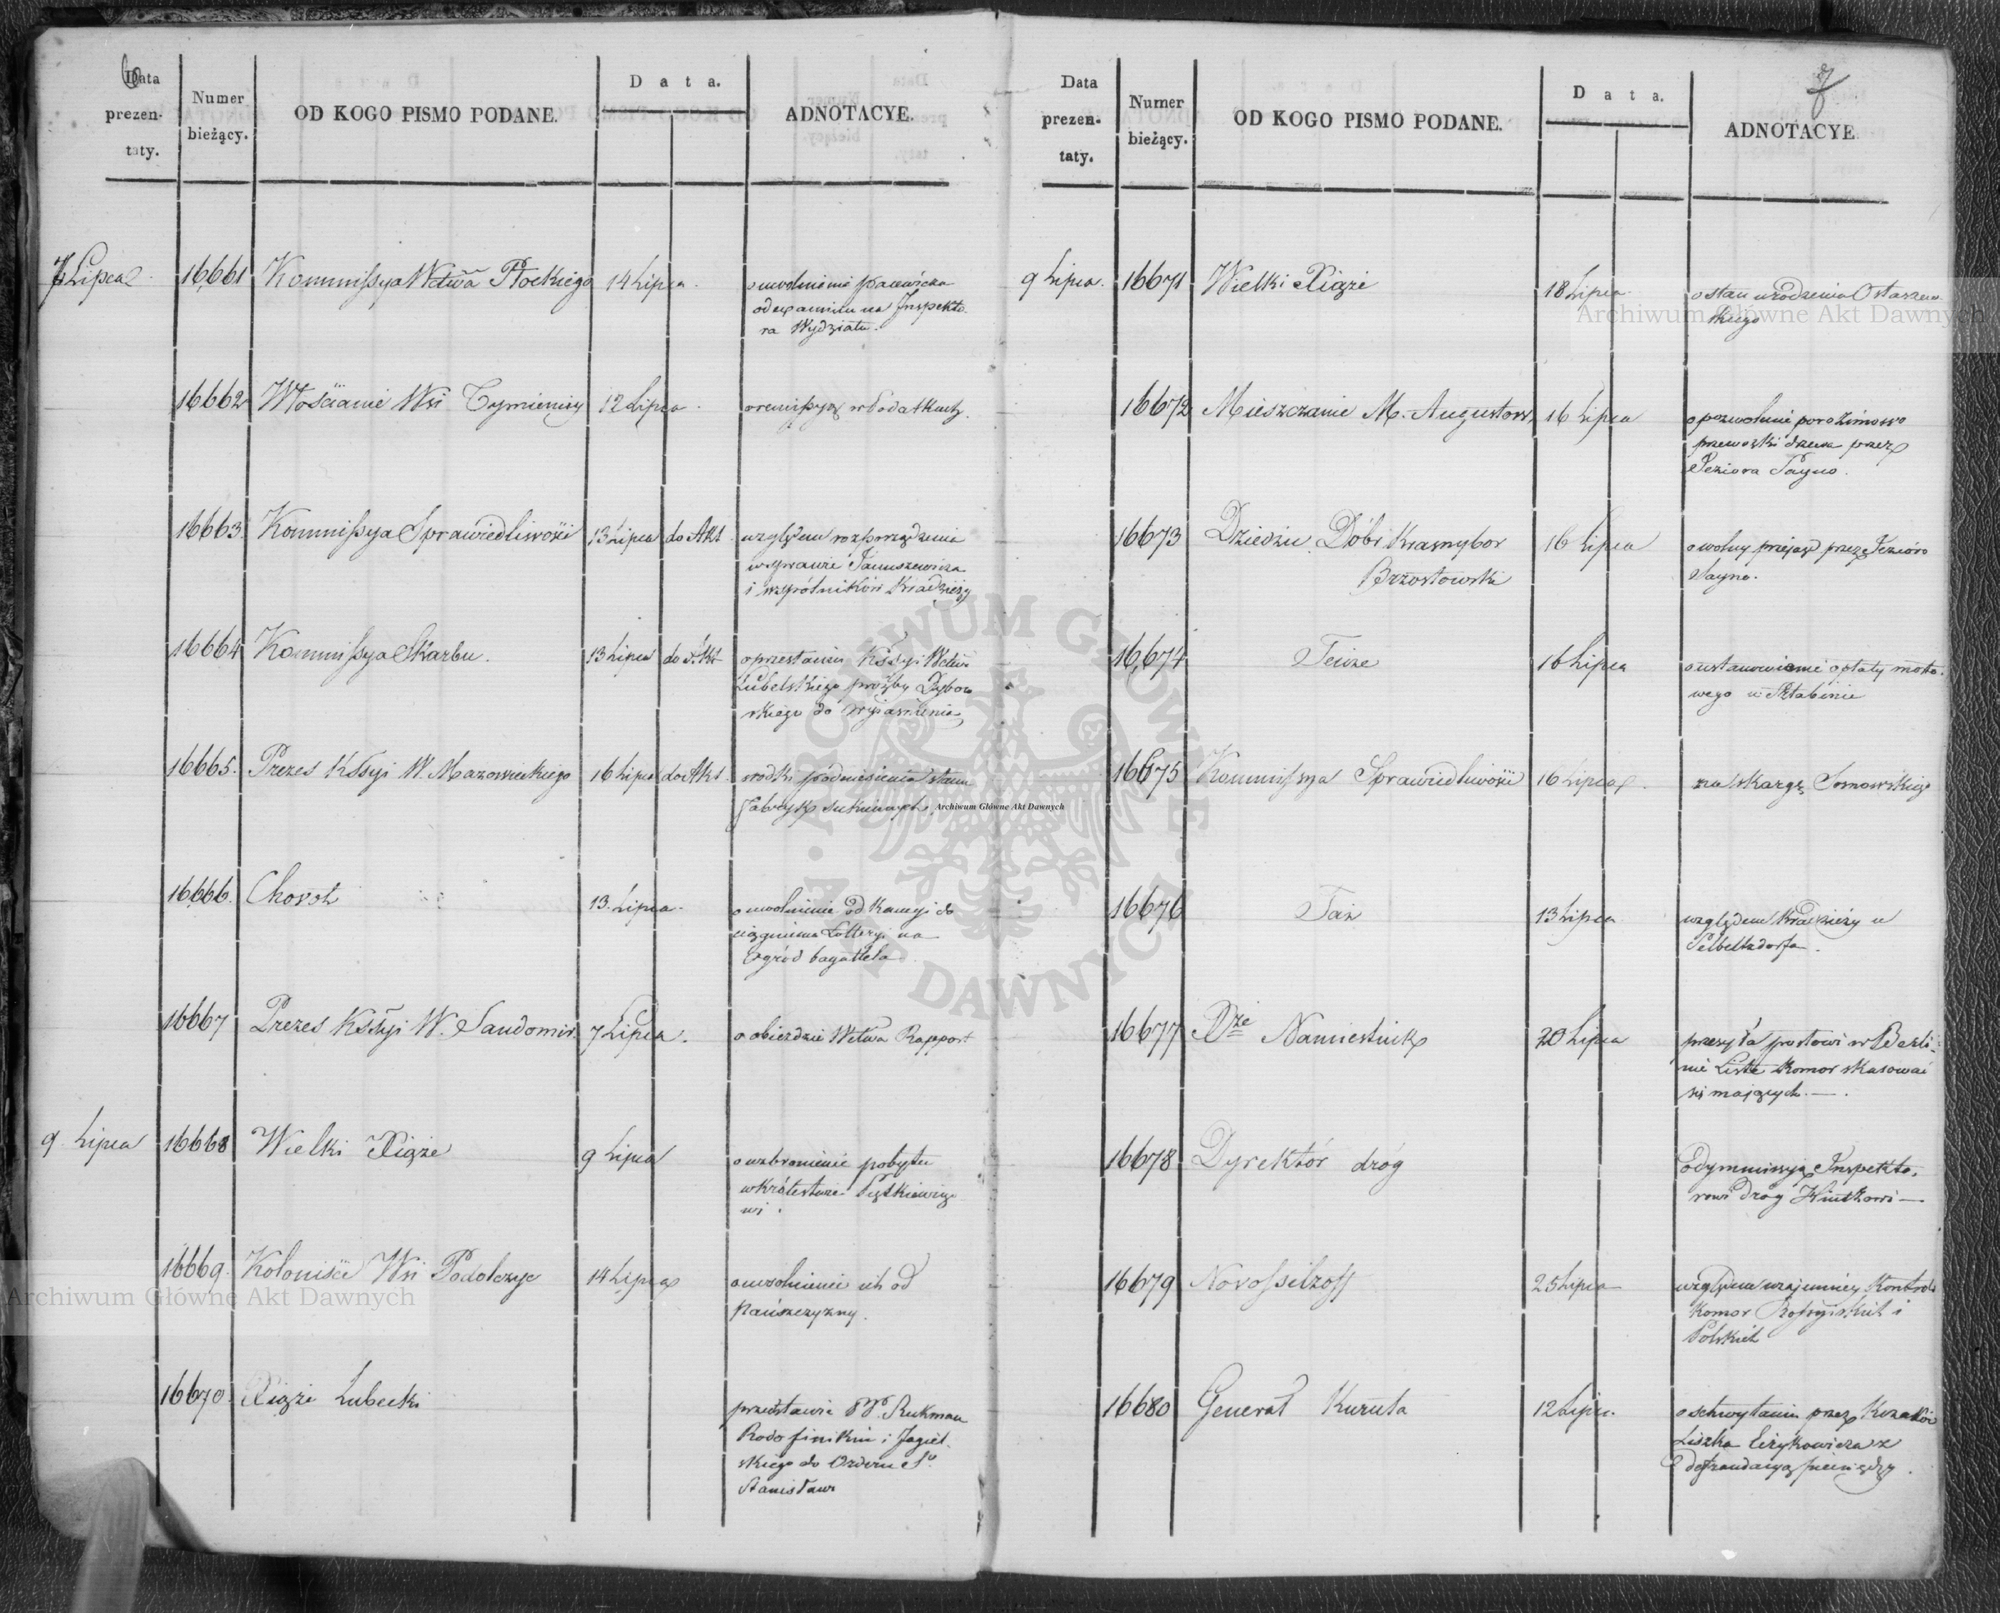 6
Data
prezen-
taty.
Numer
bieżący.
OD KOGO PISMO PODANE.
Data.
ADNOTACYE.
7 Lipca
16,661 Kommissya Wctwa Płockiego 14 Lipca
o uwolnienie
od expaminu na Inspekto-
ra Wydziału.
16662 Włościanie Wsi Tymienicy 12 Lipca
o remissyą w Podatkach.
16663 Kommissya Sprawiedliwości 13 Lipca do Akt
względem rozporządzenia
w sprawie Januszewicza
i wspólników kradzieży
16664 Kommissya Skarbu. 13 Lipca do Akt
o przesłaniu Kssyi Wctwa
Lubelskiego prośby Dąbrow
skiego do wyjaśnienia
16665. Prezes Kssyi W. Mazowieckiego 16 Lipca do Akt.
srodki podniesienia stanu
Fabryk sukiennych
16666. Chovot 13. Lipca.
o uwolnienie od Kaucyi do
ciągnienia Lotteryi na
Ogród bagatela
16667 Prezes Kssyi W. Sandomir. 7 Lipca.
o obieździe Wctwa Rapport
9 Lipca 16668 Wielki Xiąże 9 Lipca
o wzbronienie pobytu
w Królestwie Piętkiewiczo
wi.
16669. Koloniści Wsi Podolszyc 14 Lipca
o uwolnienie ich od
Pańszczyzny.
16670. Xiąże Lubecki
przedstawia PP. Ruckman
Rodofinikin i Jagiel-
skiego do Orderu Sgo
Stanisława
7
Data
prezen-
taty.
Numer
bieżący.
OD KOGO PISMO PODANE.
Data.
ADNOTACYE
9 Lipca. 16671 Wielki Xiąże 18 Lipca
o stan urodzenia Ostaszew
skiego
16672 Mieszczanie M. Augustow. 16 Lipca
o pozwolenie
przewozki drzewa przez
Jeziora Sayno.
16673 Dziedzic Dóbr Krasnybor
Brzostowski 16 Lipca
o wolny przejazd przez Jezioro
Sayno.
16,674 Tenze 16 Lipca
o ustanowienie opłaty mosto-
wego w Sztabinie
16675 Kommissya Sprawiedliwości 16 Lipca.
na skargę Somowskiego
16676 Taż 13 Lipca
względem kradzieży w
16677 Xże Namiestnik 20 Lipca
przesyła posłowi w Berli-
nie Listę Komor skasować
się mających.—.
16678 Dyrektór dróg
o dymmissyą Inspekto-
rowi Dróg
16679 Novossilzoff 25 Lipca
względem wzajemnéy Kontroli
Komor Rossyiskich i
Polskich
16680 Generał Kuruta 12 Lipca
o schwytaniu przez Kozaków
Liszka z
defraudacyą pieniędzy.
Archiwum Główne Akt Dawnych
Archiwum Główne Akt Dawnych
Archiwum Główne Akt Dawnych
ARCHIWUM GŁÓWNE
AKT DAWNYCH